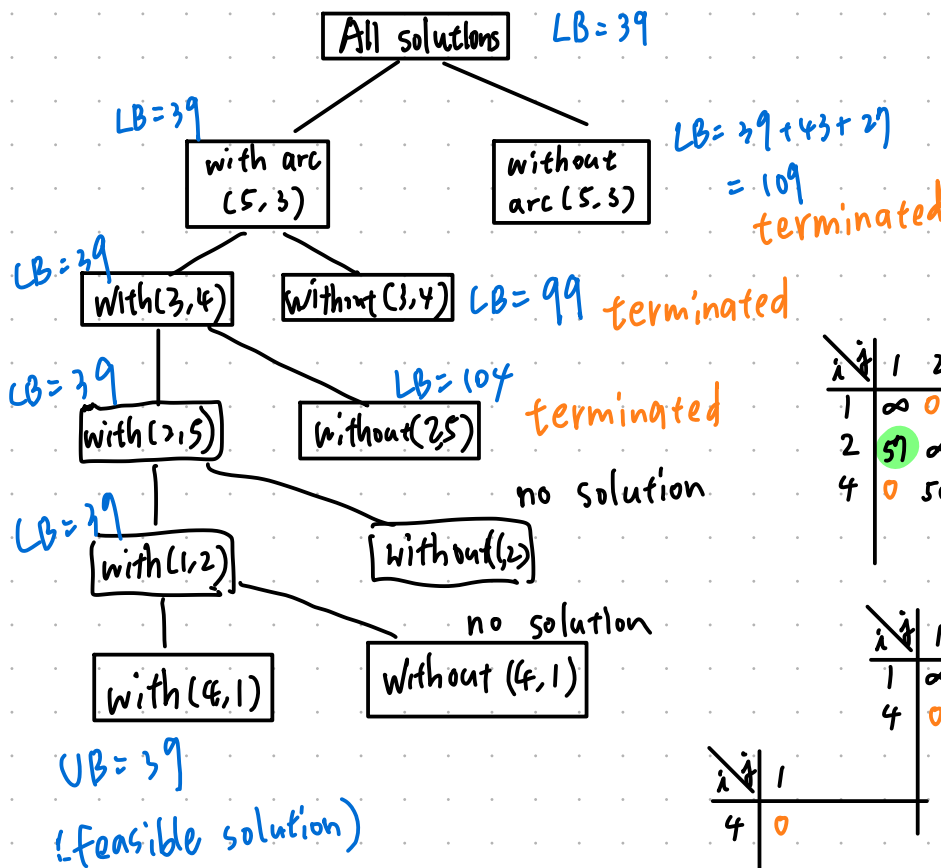 All solutions
LB=39
LB=39
with arc
(5,3)
without
arc(5,3)
LB=39+43+27
=109
terminated
LB=39
with(3,4)
without(3,4)
LB=99
terminated
LB=39
with(2,5)
LB=104
without(2,5)
terminated
LB=39
with(1,2)
no solution
without(1,2)
with(4,1)
no solution
without (4,1)
UB=39
(feasible solution)
i j 1 2
1 ∞ 0
2 57
4 0
i j 1
1
4
i j 1
4 0